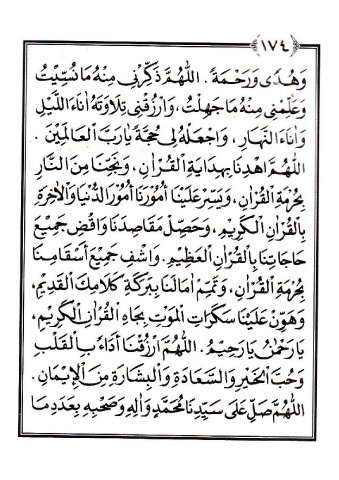 ١٧٤
وَهُدًى وَرَحْمَةً. اَللّٰهُمَّ ذَكِّرْنِي مِنْهُ مَا نُسِّيْتُ
وَعَلِّمْنِي مِنْهُ مَا جَهِلْتُ، وَارْزُقْنِي تِلَاوَتَهُ اٰنَاءَ اللَّيْلِ
وَاٰنَاءَ النَّهَارِ، وَاجْعَلْهُ لِي حُجَّةً يَارَبَّ الْعَالَمِيْنَ.
اَللّٰهُمَّ اهْدِنَا بِهِدَايَةِ الْقُرْاٰنِ، وَنَجِّنَا مِنَ النَّارِ
بِحُرْمَةِ الْقُرْاٰنِ، وَيَسِّرْ عَلَيْنَا أُمُوْرَنَا أُمُوْرَ الدُّنْيَا وَالْاٰخِرَةِ
بِالْقُرْاٰنِ الْكَرِيْمِ، وَحَصِّلْ مَقَاصِدَنَا وَاقْضِ جَمِيْعَ
حَاجَاتِنَا بِالْقُرْاٰنِ الْعَظِيْمِ. وَاشْفِ جَمِيْعَ أَسْقَامِنَا
بِحُرْمَةِ الْقُرْاٰنِ، وَتَمِّمْ اٰمَالَنَا بِبَرَكَةِ كَلَامِكَ الْقَدِيْمِ،
وَهَوِّنْ عَلَيْنَا سَكَرَاتِ الْمَوْتِ بِجَاهِ الْقُرْاٰنِ الْكَرِيْمِ،
يَارَحْمٰنُ يَارَحِيْمُ. اَللّٰهُمَّ ارْزُقْنَا أَدَاءً بِالْقَلْبِ
وَحُبَّ الْخَيْرِ وَالسَّعَادَةِ وَالْبِشَارَةِ مِنَ الْإِيْمَانِ.
اَللّٰهُمَّ صَلِّ عَلَى سَيِّدِنَا مُحَمَّدٍ وَاٰلِهِ وَصَحْبِهِ بِعَدَدِ مَا